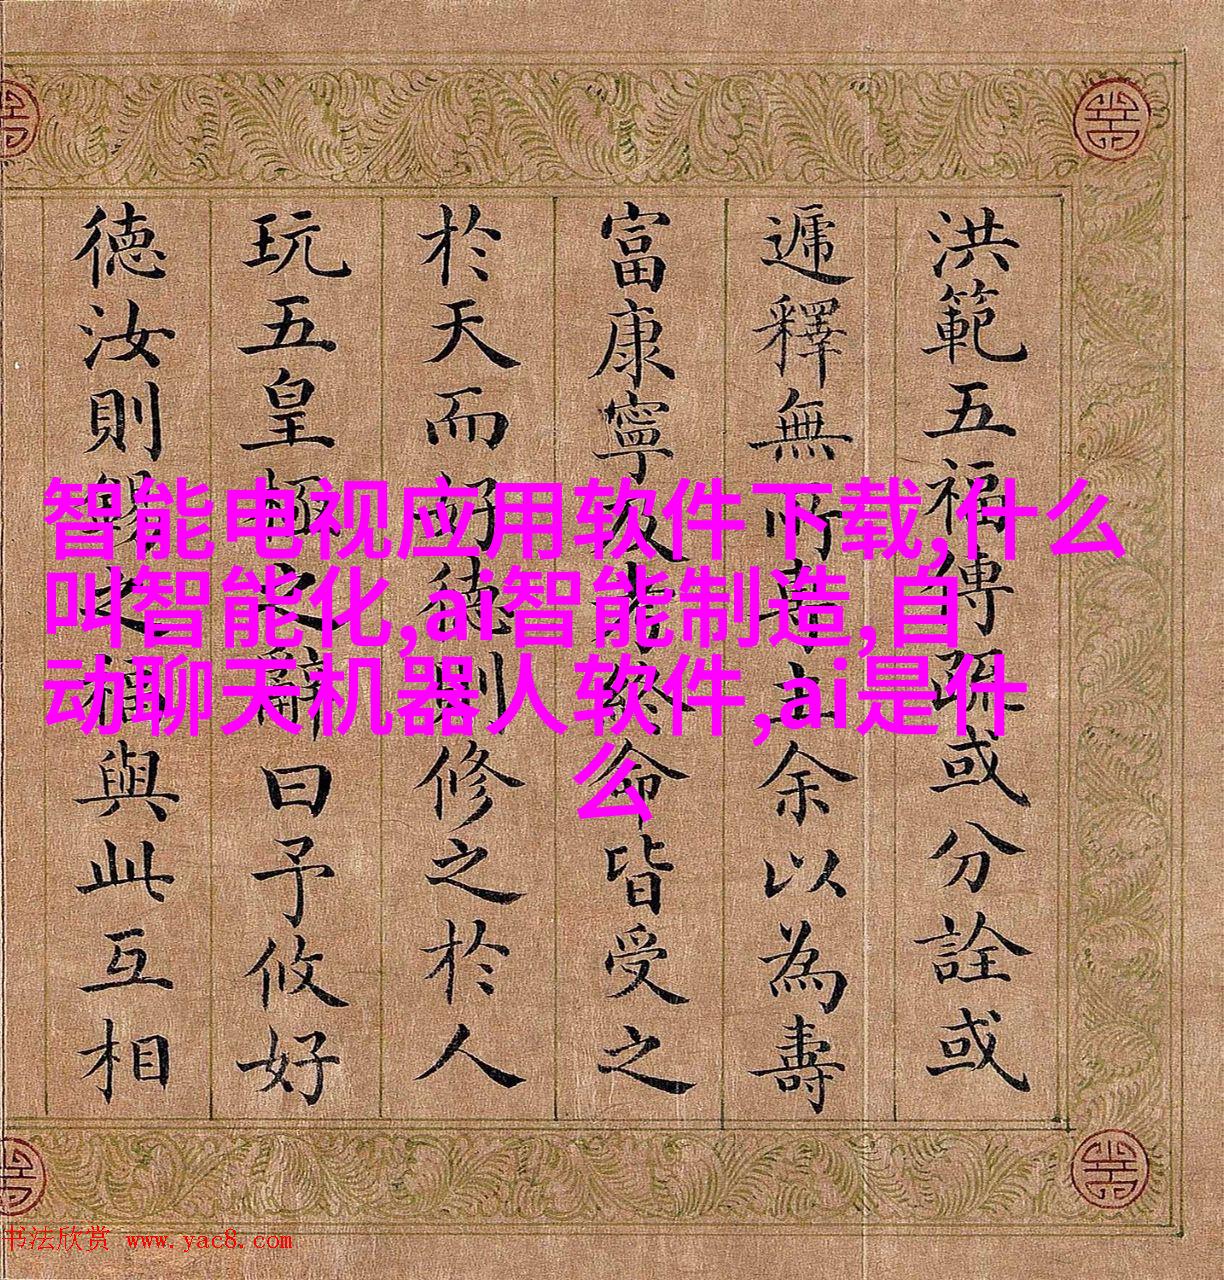 洪範五福傳疏或分詮或
遞釋無所專主余以為壽
富康寧及考終命皆受之
於天而好德則修之於人
玩五皇極之辭曰予攸好
德汝則錫之福與此互相
智能电视应用软件下载,什么
叫智能化,ai智能制造,自
动聊天机器人软件,ai是什
么
书法欣赏 www.yac8.com